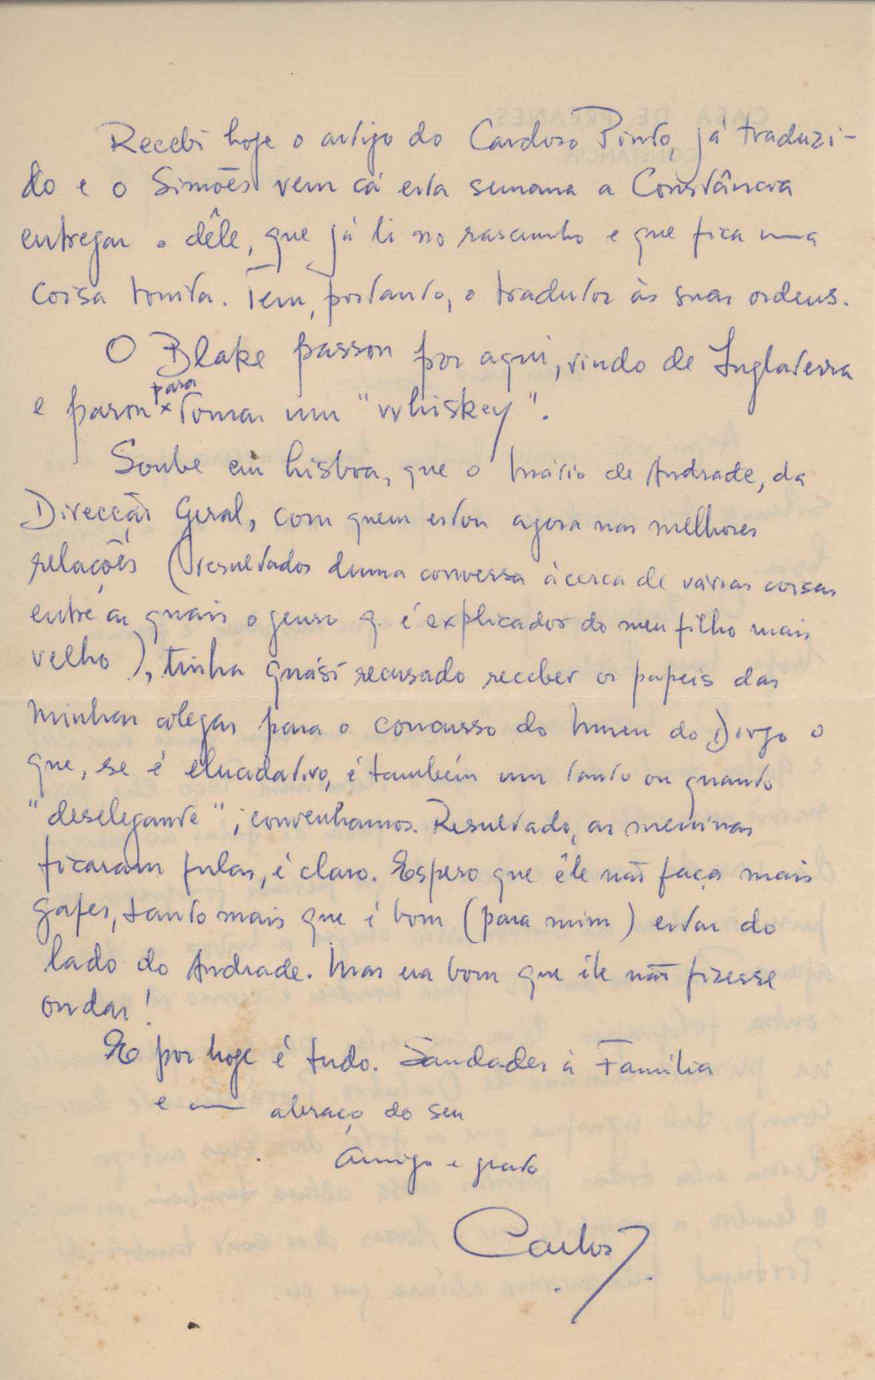 Recebi hoje o artigo do Cardoso Pinto, já traduzi-
do e o Simões vem cá esta semana a Constância
entregar o dêle, que já li no rascunho e que fica uma
coisa bonita. Tem, portanto, o tradutor às suas ordens.
O Blake passou por aqui, vindo de Inglaterra
e parou para tomar um "whiskey".
Soube em Lisboa, que o Mário de Andrade, da
Direcção Geral, com quem estou agora nas melhores
relações (resultados duma conversa àcerca de várias coisas
entre as quais o genro q. é explicador do meu filho mais
velho), tinha quási recusado receber os papeis das
minhas colegas para o concurso do Museu do Diogo o
que, se é elucidativo, é também um tanto ou quanto
"deselegante"; convenhamos. Resultado, as meninas
ficaram fulas, é claro. Espero que êle não faça mais
gafes, tanto mais que é bom (para mim) estar do
lado do Andrade. Mas era bom que êle não fizesse
ondas!
E por hoje é tudo. Saudades à Família
e um abraço do seu
Amigo e grato
Carlos